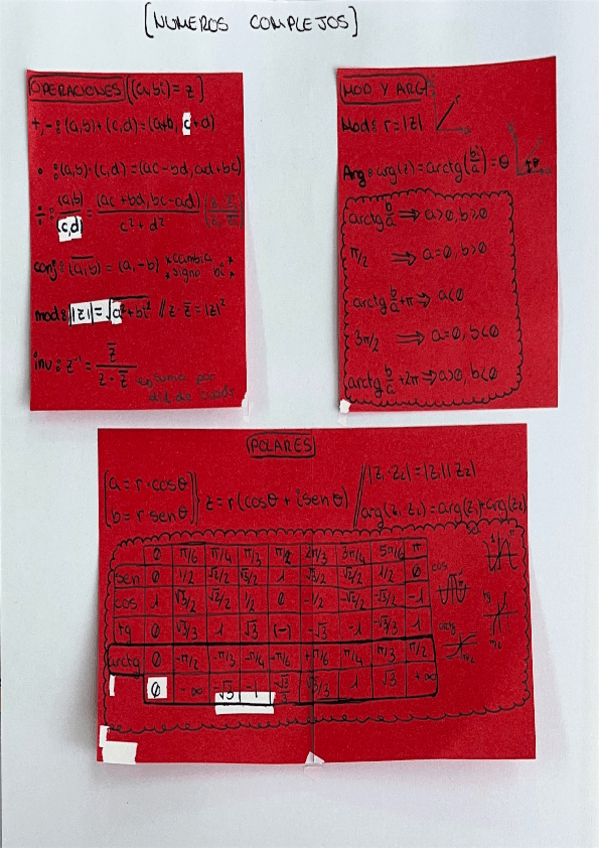 [NUMEROS COMPLEJOS]
OPERACIONES ((a,bi) = z]
+,-: (a,b)+(c,d)=(a+b, c+d)
• : (a,b)·(c,d)=(ac-bd, ad+bc)
÷ : (a,b)/(c,d) = (ac+bd, bc-ad)/c²+d²
conj: (a,b) = (a,-b) *cambia signo bi*
mod: |z| = √a²+bi² // z·z̅ = |z|²
inv: z⁻¹ = z̅/z·z̅
MOD Y ARG
Mod: r=|z|
Arg: arg(z) = arctg(bi/a) = θ
arctg b/a ⇒ a>0, b≥0
π/2 ⇒ a=0, b>0
arctg b/a +π ⇒ a<0
3π/2 ⇒ a=0, b<0
arctg b/a +2π ⇒ a>0, b<0
POLARES
a = r·cosθ
b = r·senθ
z = r(cosθ + isenθ)
|z₁·z₂| = |z₁||z₂|
arg(z₁·z₂) = arg(z₁)+arg(z₂)
0 π/6 π/4 π/3 π/2 2π/3 3π/4 5π/6 π
sen 0 1/2 √2/2 √3/2 1 √3/2 √2/2 1/2 0
cos 1 √3/2 √2/2 1/2 0 -1/2 -√2/2 -√3/2 -1
tg 0 √3/3 1 √3 (-) -√3 -1 -√3/3 1
arctg 0 -π/2 -π/3 -π/4 -π/6 +π/6 π/4 π/3 π/2
0 -∞ -√3 -1 -√3/3 √3/3 1 √3 +∞
cos
tg
arctg
π/2